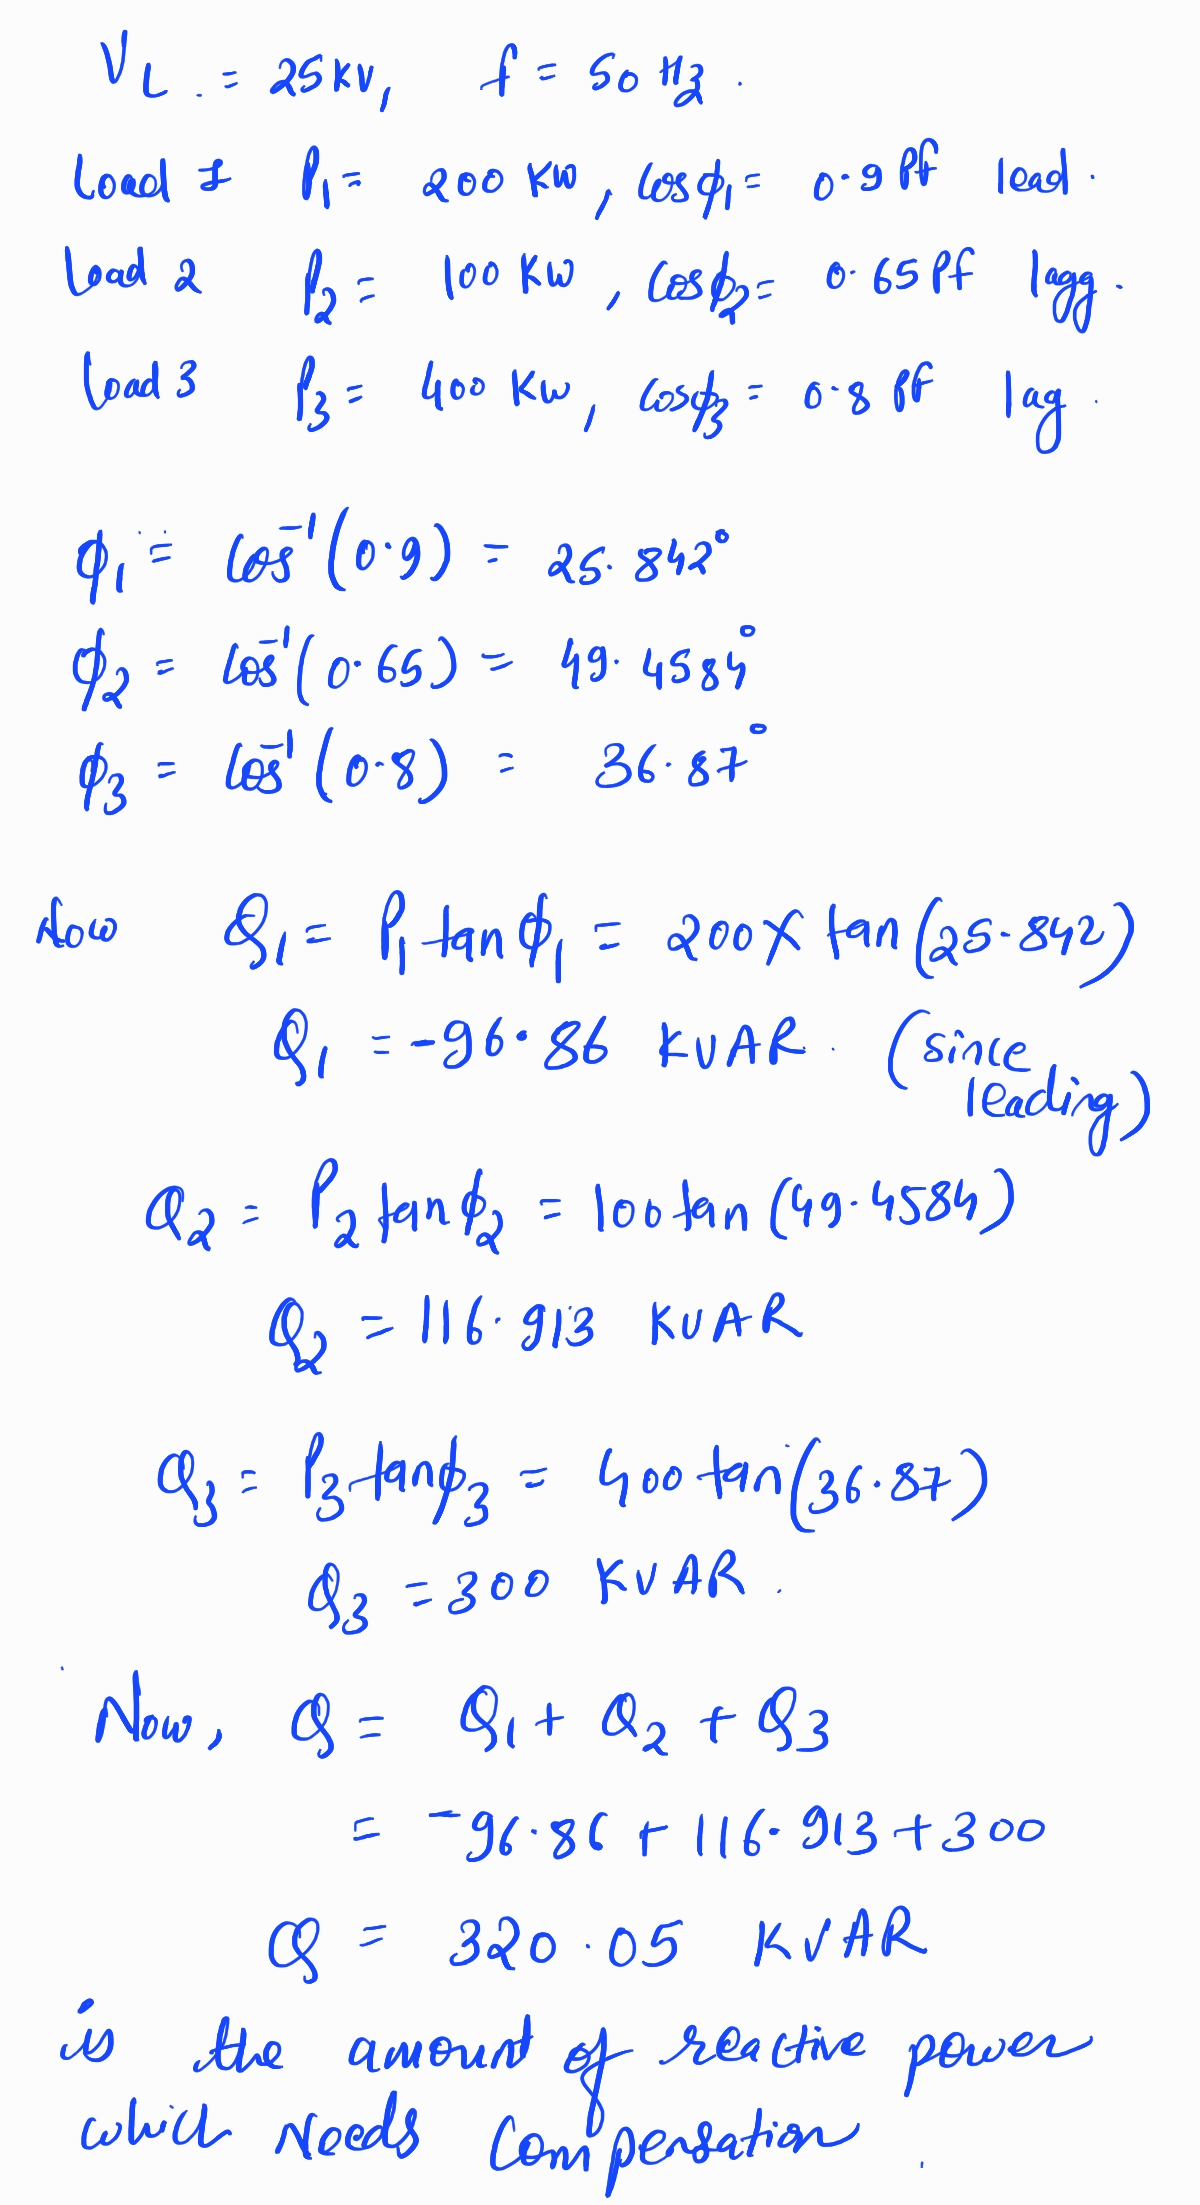 V_L = 25 KV, f = 50 Hz.
Load 1 P₁ = 200 KW, Cosϕ₁ = 0.9 Pf lead.
Load 2 P₂ = 100 KW, Cosϕ₂ = 0.65 Pf lagg.
Load 3 P₃ = 400 KW, Cosϕ₃ = 0.8 Pf lag.
ϕ₁ = Cos⁻¹(0.9) = 25.842°
ϕ₂ = Cos⁻¹(0.65) = 49.4584°
ϕ₃ = Cos⁻¹(0.8) = 36.87°
Now Q₁ = P₁ tan ϕ₁ = 200 X tan(25.842)
Q₁ = -96.86 KVAR. (since
leading)
Q₂ = P₂ tan ϕ₂ = 100 tan (49.4584)
Q₂ = 116.913 KVAR
Q₃ = P₃ tanϕ₃ = 400 tan(36.87)
Q₃ = 300 KVAR.
Now, Q = Q₁ + Q₂ + Q₃
= -96.86 + 116.913 + 300
Q = 320.05 KVAR
is the amount of reactive power
which Needs Compensation.